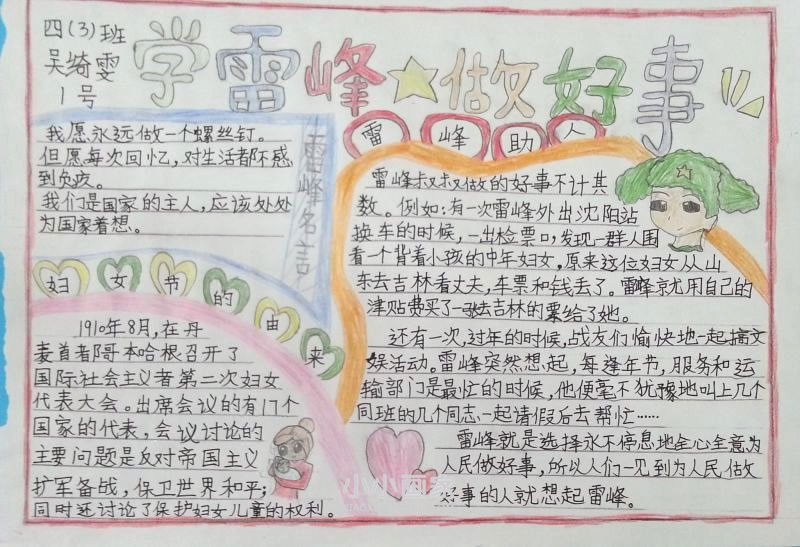 四(3)班
吴绮雯
1号
学雷峰做好事
我愿永远做一个螺丝钉。
但愿每次回忆,对生活都不感
到负疚。
我们是国家的主人,应该处处
为国家着想。
雷峰名言
雷峰助人
雷峰叔叔做的好事不计其
数。例如:有一次雷峰外出沈阳站
换车的时候,一出检票口,发现一群人围
看一个背着小孩的中年妇女,原来这位妇女从山
东去吉林看丈夫,车票和钱丢了。雷峰就用自己的
津贴费买了一张去吉林的票给了她。
还有一次,过年的时候,战友们愉快地一起搞文
娱活动。雷峰突然想起,每逢年节,服务和运
输部门是最忙的时候,他便毫不犹豫地叫上几个
同班的几个同志一起请假后去帮忙……
雷峰就是选择永不停息地全心全意为
人民做好事,所以人们一见到为人民做
好事的人就想起雷峰。
妇女节的由来
1910年8月,在丹
麦首者阝哥本哈根召开了
国际社会主义者第二次妇女
代表大会。出席会议的有17个
国家的代表,会议讨论的
主要问题是反对帝国主义
扩军备战,保卫世界和平;
同时还讨论了保护妇女儿童的权利。
小小画家